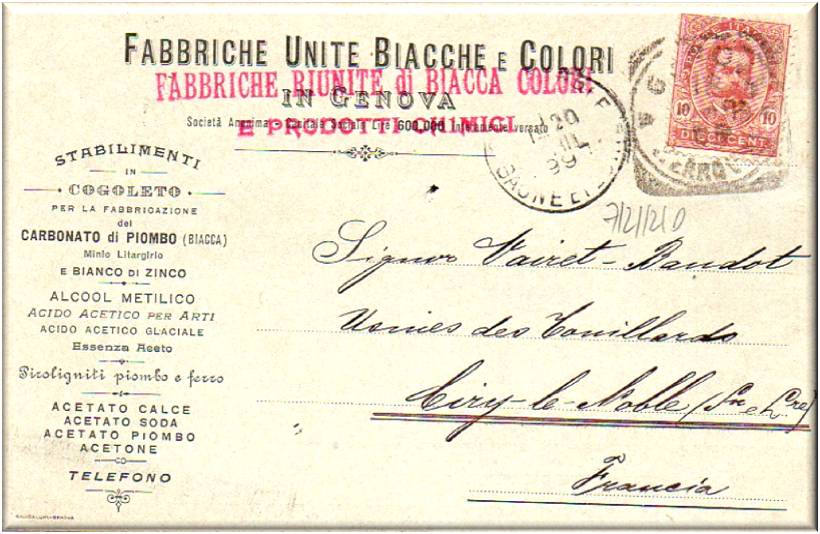 FABBRICHE UNITE BIACCHE E COLORI
FABBRICHE RIUNITE di BIACCA COLORI
IN GENOVA
Società Anonima - Capitale Sociale Lire 600.000 interamente versato
E PRODOTTI CHIMICI
10 10
DIECI CENT.
20
99
SAONE ET
7/2/1210
STABILIMENTI
IN
COGOLETO
PER LA FABBRICAZIONE
del
CARBONATO di PIOMBO (BIACCA)
Minio Litargirio
E BIANCO DI ZINCO
ALCOOL METILICO
ACIDO ACETICO PER ARTI
ACIDO ACETICO GLACIALE
Essenza Aceto
Piroligniti piombo e ferro
ACETATO CALCE
ACETATO SODA
ACETATO PIOMBO
ACETONE
TELEFONO
Signor Vairet-Baudot
Usines des Touillards
Ciry-le-Noble (Sne & Lre)
Francia